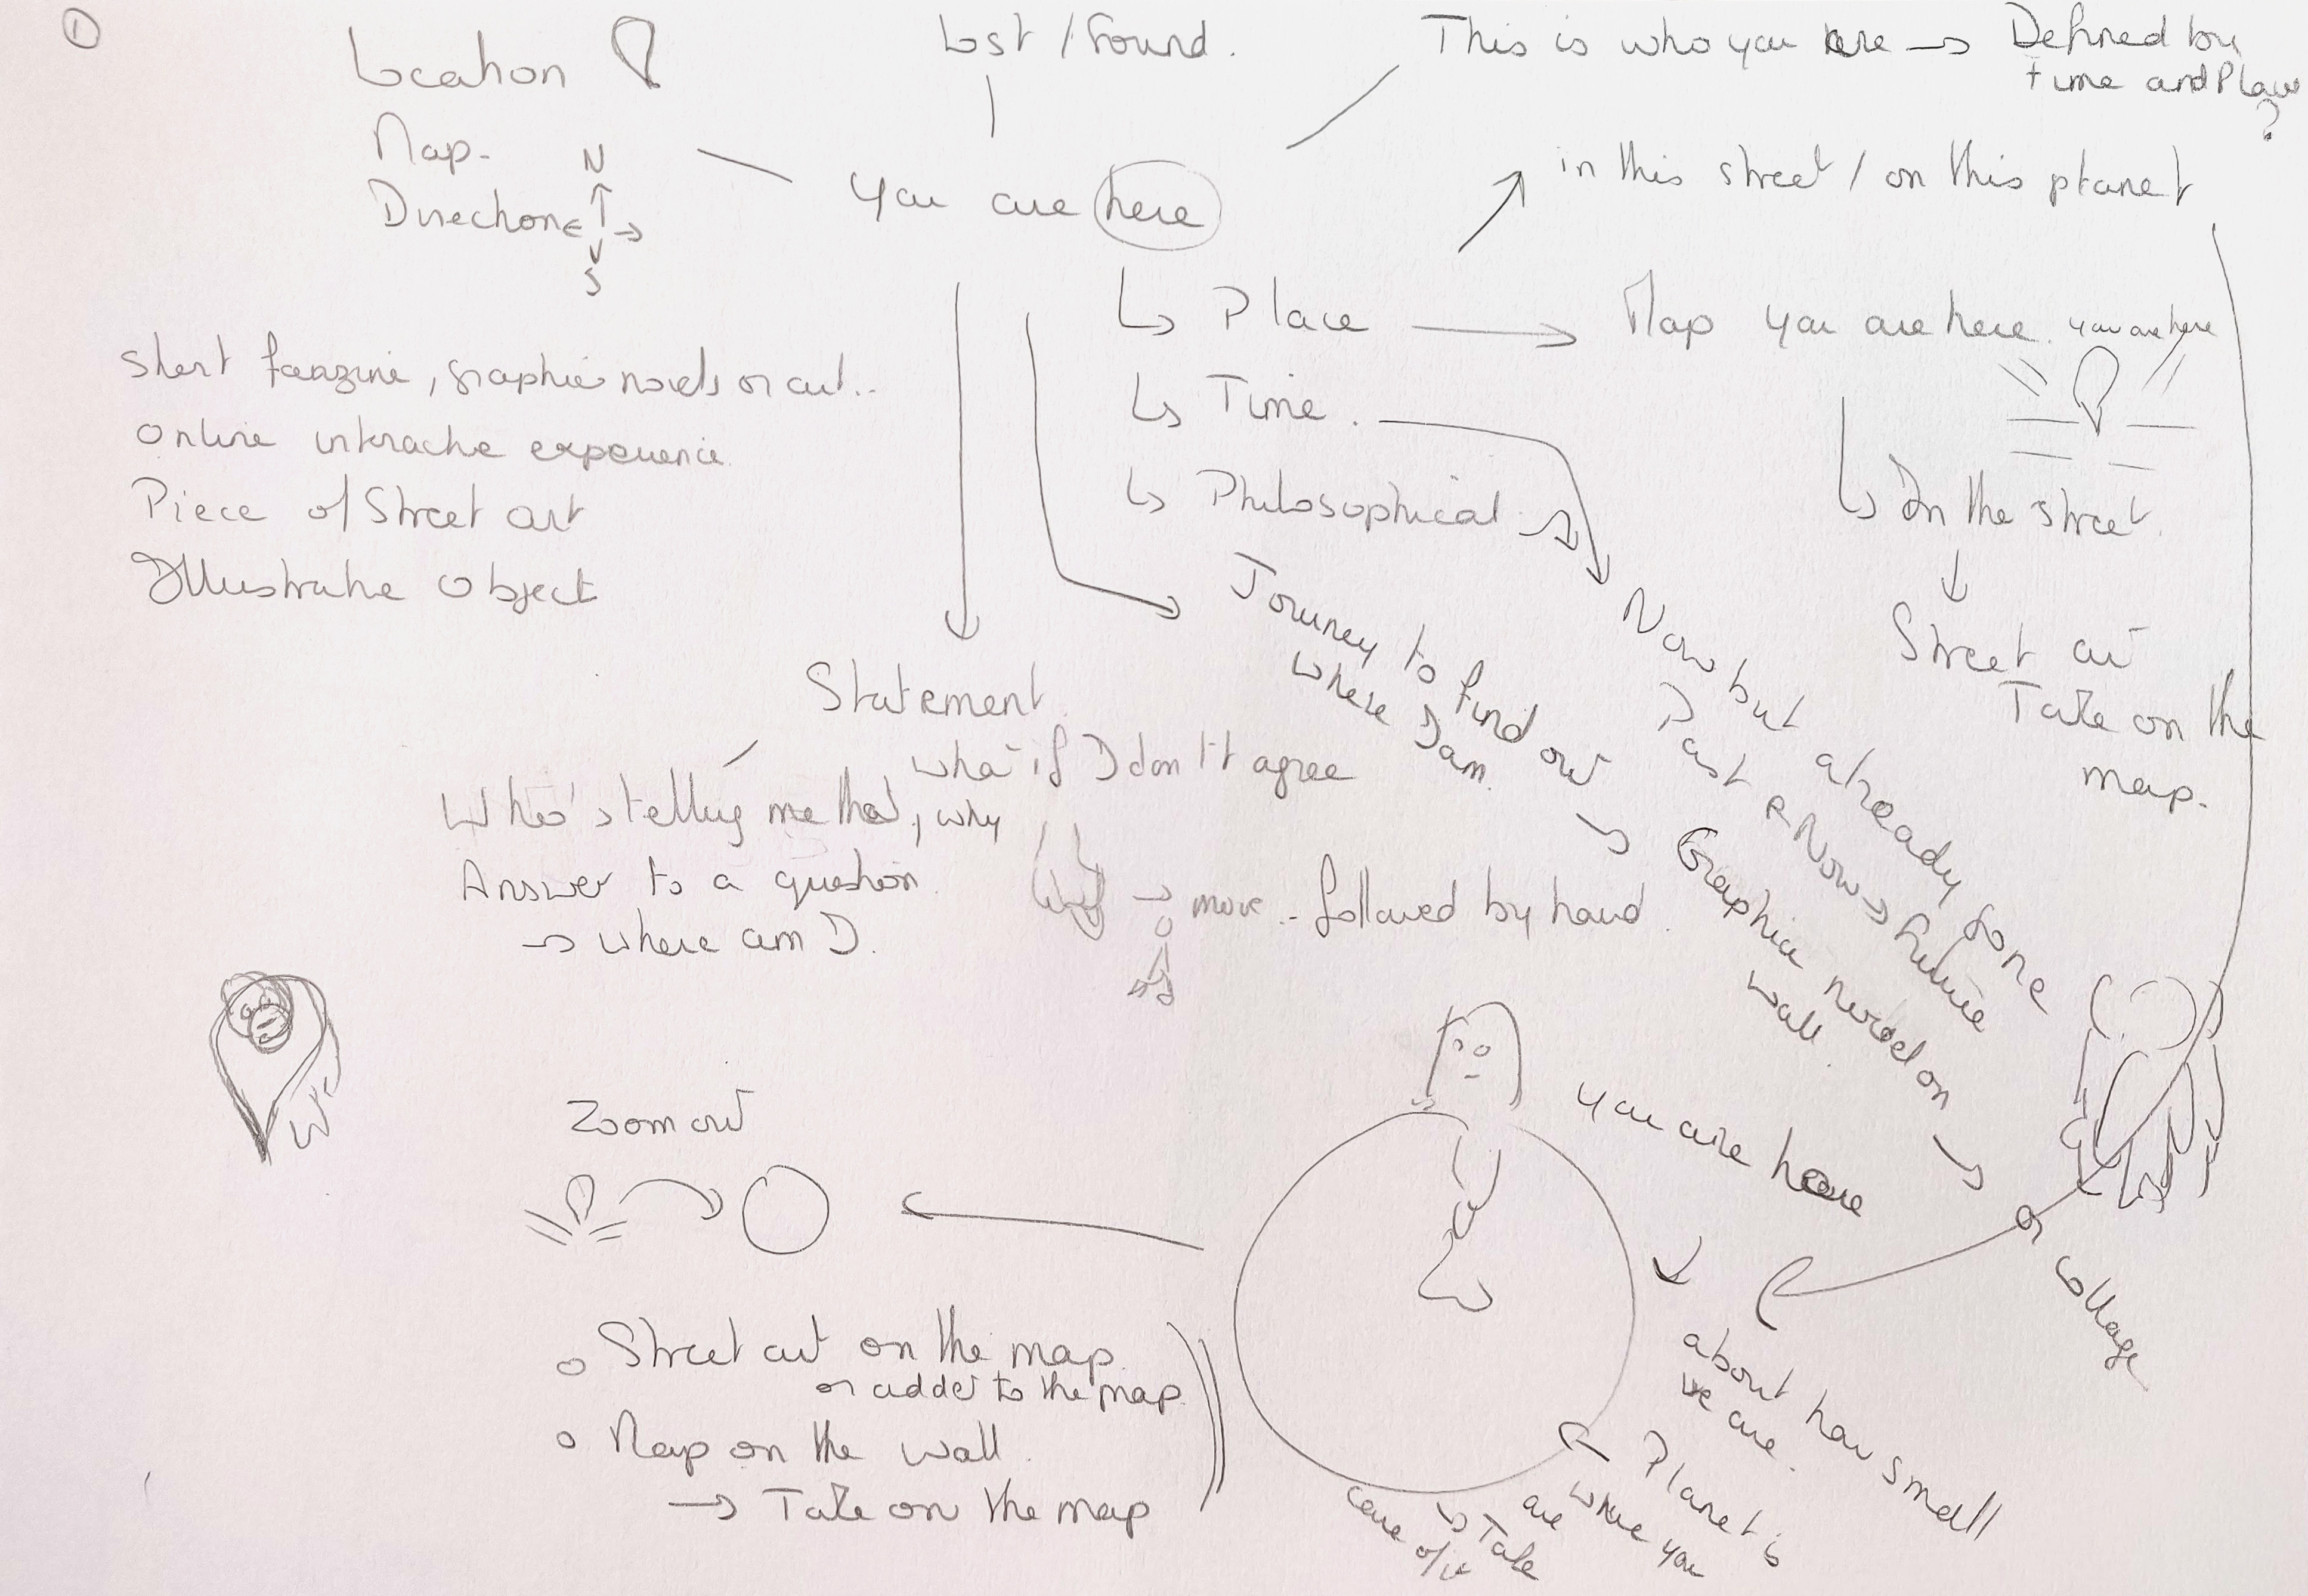 1
Location
Map.
N
Direction
S
Lost / Found.
This is who you are → Defined by
time and Place
?
in this street / on this planet
you are here
↳ Place → Map you are here. you are here
↳ Time.
↳ Philosophical
↳ In the street.
Street art
Take on the
map.
short fanzine, graphic novels or art..
Online interactive experience
Piece of Street art
Illustrative Object
Journey to find out
where I am.
Now but already gone
Past → Now → Future
Graphic novel on
wall.
or collage
Statement
what if I don't agree
Who's telling me that, why
Answer to a question.
→ where am I.
→ move.. followed by hand.
Zoom out
you are here
about how small
we are.
Planet is
where you
are
→ Take
care of it
Street art on the map.
or added to the map
Map on the wall.
→ Take on the map